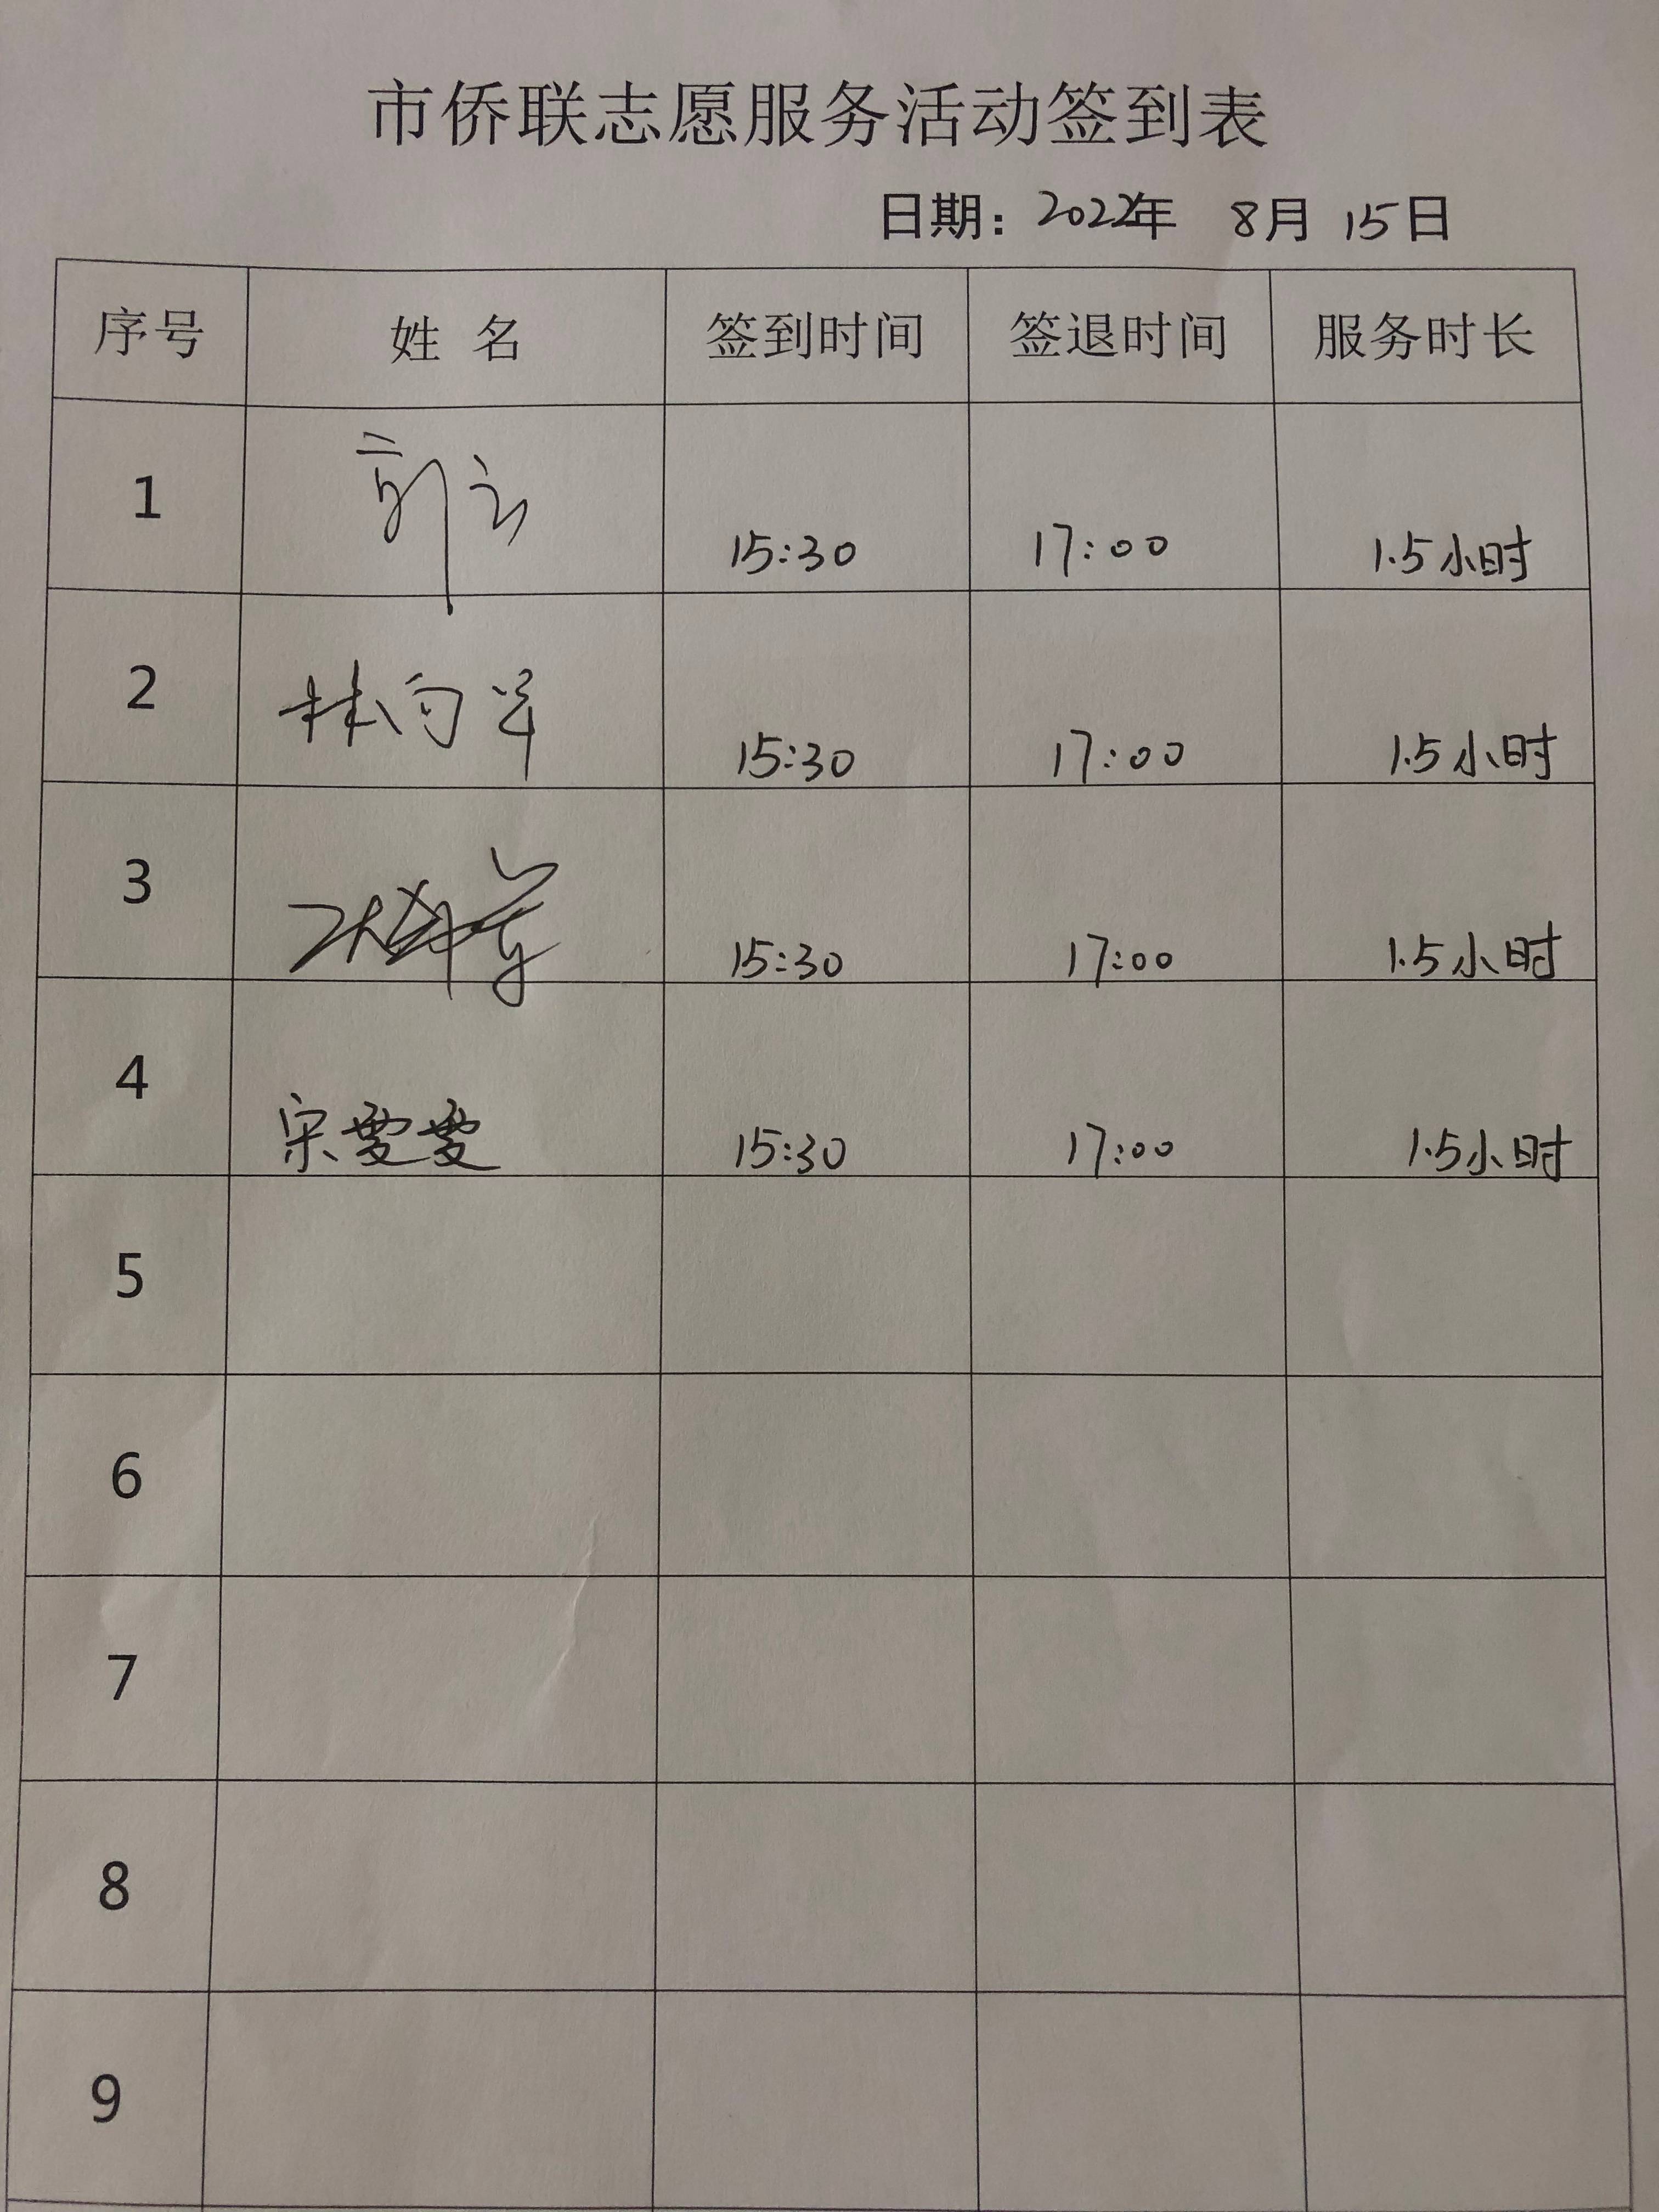 市侨联志愿服务活动签到表
日期：2022年 8月 15日
序号 姓 名 签到时间 签退时间 服务时长
1 郭云 15:30 17:00 1.5小时
2 林向 15:30 17:00 1.5小时
3 15:30 17:00 1.5小时
4 宋雯雯 15:30 17:00 1.5小时
5
6
7
8
9